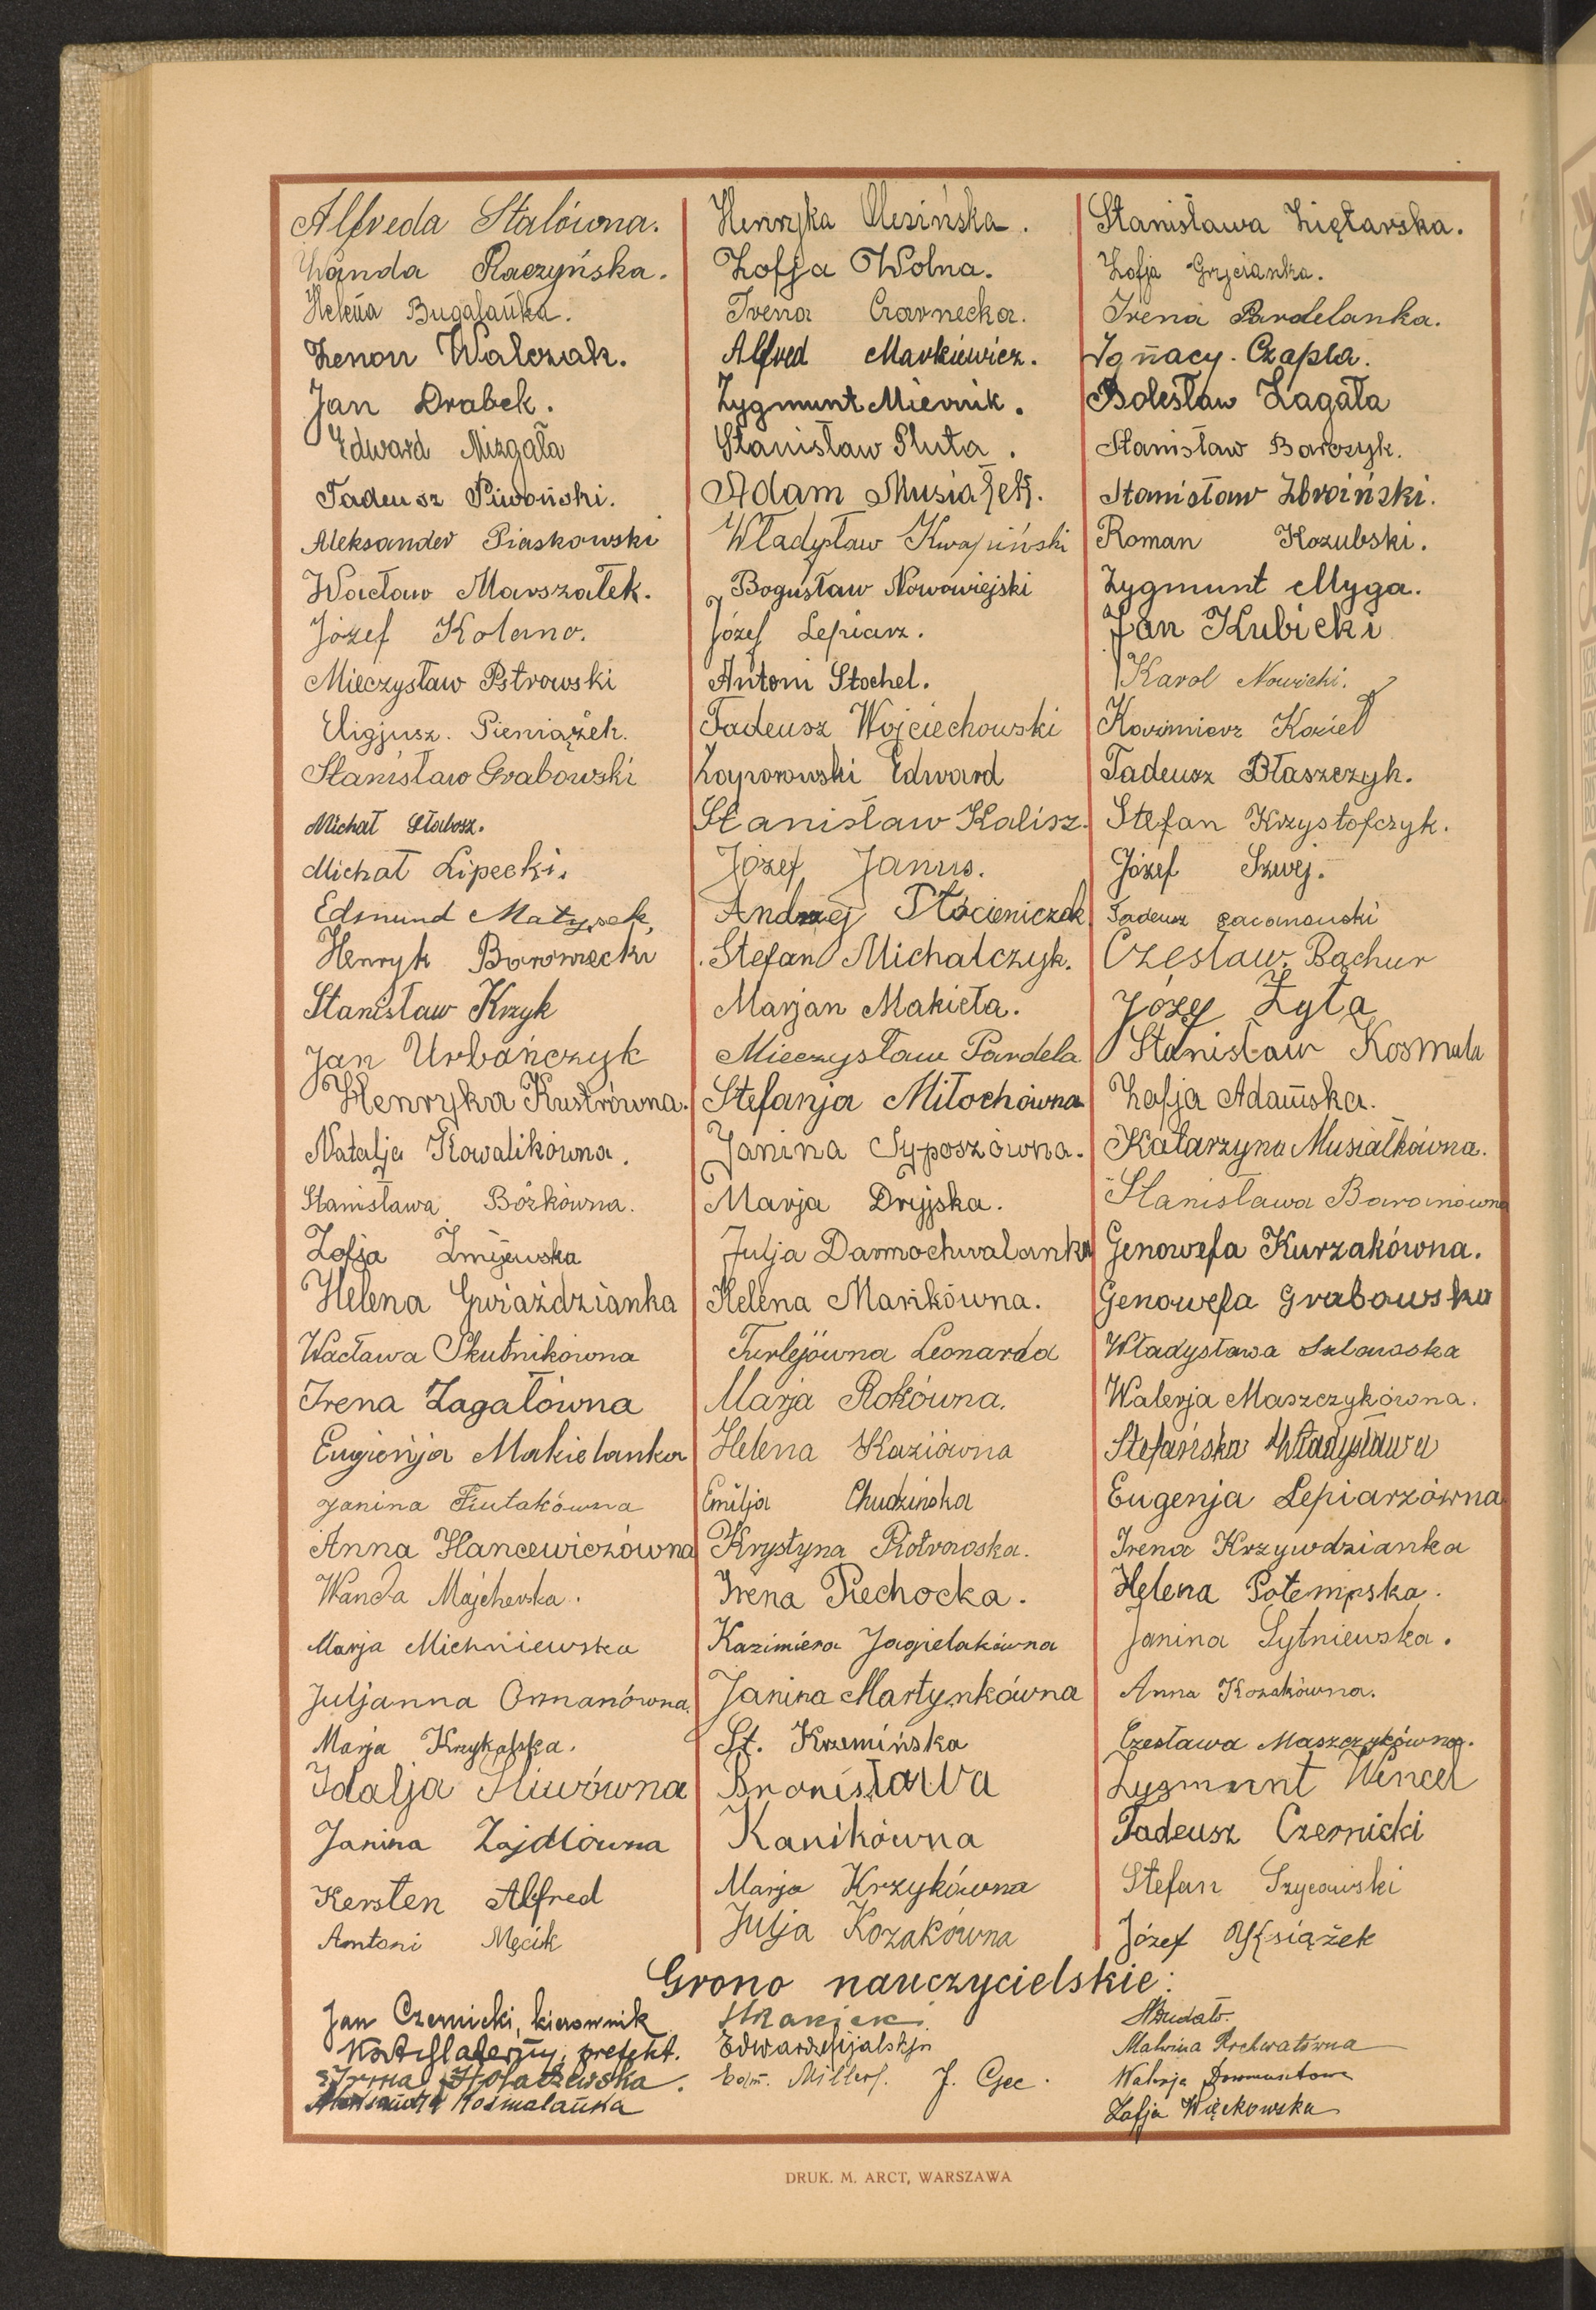 Alfreda Stalówna.
Wanda Raczyńska.
Helena Bugalanka.
Zenon Walczak.
Jan Drabek.
Edward Mizgała
Tadeusz Piwoński.
Aleksander Piaskowski
Wacław Marszałek.
Józef Kolano.
Mieczysław Pstrowski
Eligjusz. Pieniążek.
Stanisław Grabowski
Michał Słabosz.
Michał Lipecki.
Edmund Matysek,
Henryk Borowiecki
Stanisław Krzyk
Jan Urbańczyk
Henryka Kustrówna.
Natalja Kowalikówna.
Stanisława Bożkówna.
Zofja Żmijewska
Helena Gwiaździanka
Wacława Skutnikówna
Irena Zagałówna
Eugienja Makielanka
Janina Fiutakówna
Anna Hancewiczówna
Wanda Majcherska.
Marja Michniewska
Juljanna Osmanówna.
Marja Krzykalska.
Idalja Śliwówna
Janina Zajdlówna
Kersten Alfred
Antoni Męcik
Henryka Olesińska.
Zofja Wolna.
Irena Czarnecka.
Alfred Markiewicz.
Zygmunt Miernik.
Stanisław Pluta.
Adam Musiałek.
Władysław Kwapiński
Bogusław Nowowiejski
Józef Lepiarz.
Antoni Stochel.
Tadeusz Wojciechowski
Zaporowski Edward
Stanisław Kalisz.
Józef Janus.
Andrzej Płócieniczak
Stefan Michalczyk.
Marjan Makieła.
Mieczysław Pardela
Stefanja Miłochówna
Janina Syposzówna.
Marja Dryjska.
Julja Darmochwalanka
Helena Mańkówna.
Turlejówna Leonarda
Marja Rokówna.
Helena Kaziówna
Emilja Chudzińska
Krystyna Piotrowska.
Irena Piechocka.
Kazimiera Jagielakówna
Janina Martynkówna
St. Krzemińska
Bronisława
Kanikówna
Marja Krzykówna
Julja Kozakówna
Stanisława Ziętarska.
Zofja Grzecianka.
Irena Pardelanka.
Ignacy. Czapla.
Bolesław Zagała
Stanisław Barczyk.
Stanisław Zbroiński.
Roman Kozubski.
Zygmunt Myga.
Jan Kubicki
Karol Nowicki.
Kazimierz Kozieł
Tadeusz Błaszczyk.
Stefan Krzystofczyk.
Józef Szwej.
Tadeusz
Czesław. Bąchur
Józef Żyła
Stanisław Kosmala
Zofja Adamska.
Katarzyna Musiałkówna.
Stanisława Baranówna
Genowefa Kurzakówna.
Genowefa Grabowska
Władysława
Walerja Maszczykówna.
Stefańska Władysława
Eugenja Lepiarzówna
Irena Krzywdzianka
Helena Potempska.
Janina Sytniewska.
Anna Kozakówna.
Czesława Maszczykówna.
Zygmunt Wencel
Tadeusz Czernicki
Stefan
Józef Książek
Grono nauczycielskie:
Jan Czernicki, kierownik
prefekt.
Irma
Aleksandra Kosmalanka
Edward Fijałskyn
Edm. Millert. J. Gec.
Malwina Rochwałówna
Walerja
Zofja Więckowska
DRUK. M. ARCT, WARSZAWA